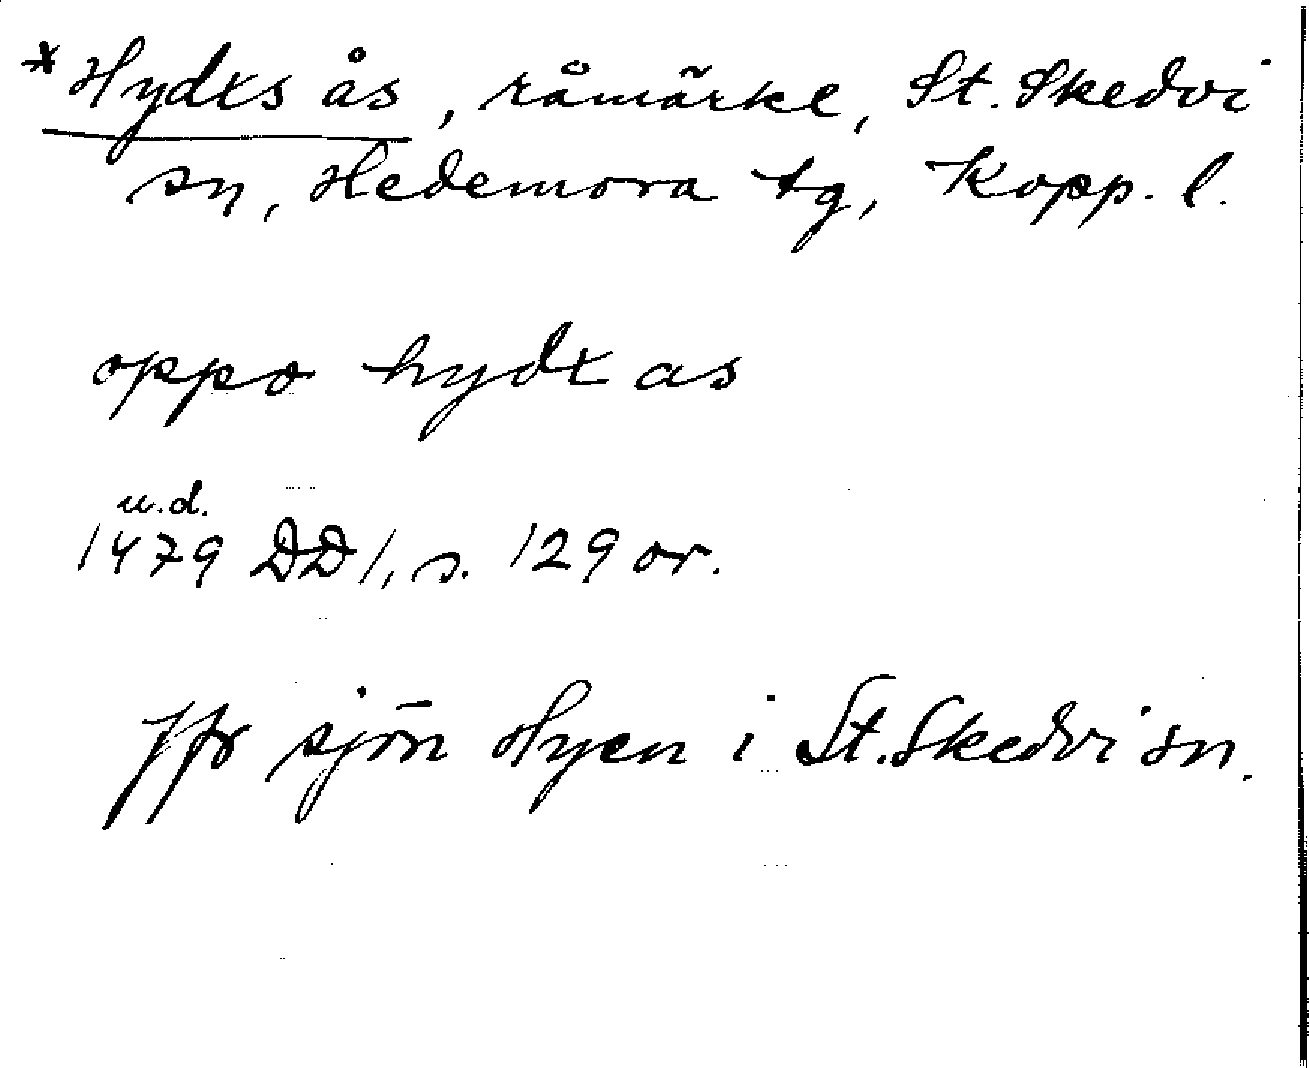 *Hydxs ås, råmärke, St. Skedvi
sn, Hedemora tg, Kopp. l.
oppo hydx as
u.d.
1479 DD 1, s. 129 or.
Jfr sjön Hyen i St. Skedvi sn.